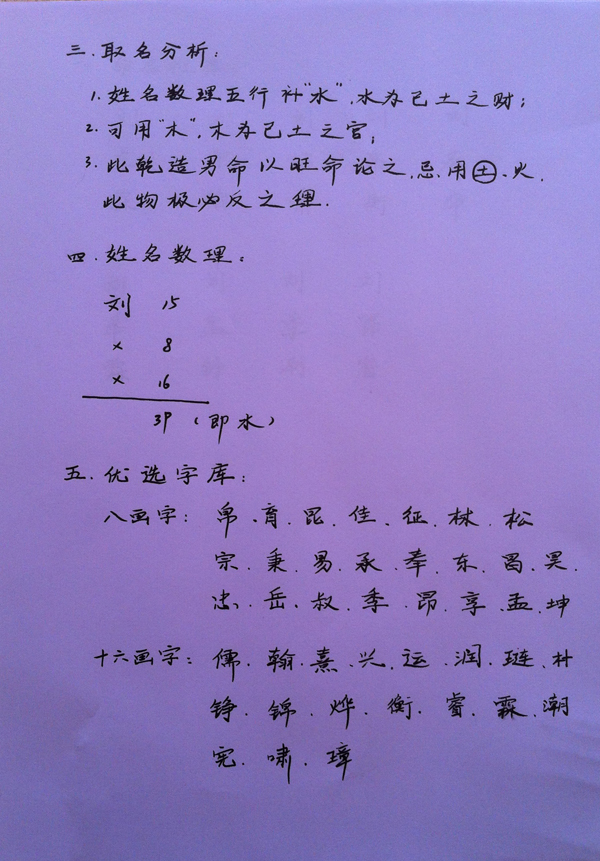 三.取名分析：
1.姓名数理五行补"水",水为己土之财；
2.可用"木",木为己土之官；
3.此乾造男命以旺命论之,忌用土、火.
此物极必反之理.
四.姓名数理：
刘 15
× 8
× 16
39（即水）
五.优选字库：
八画字：帛.育.昆.佳.征.林.松
宗.秉.易.承.奉.东.昌.昊.
忠.岳.叔.季.昂.享.孟.坤
十六画字：儒.翰.熹.兴.运.润.琏.朴
铮.锦.烨.衡.睿.霖.潮
宪.啸.璋